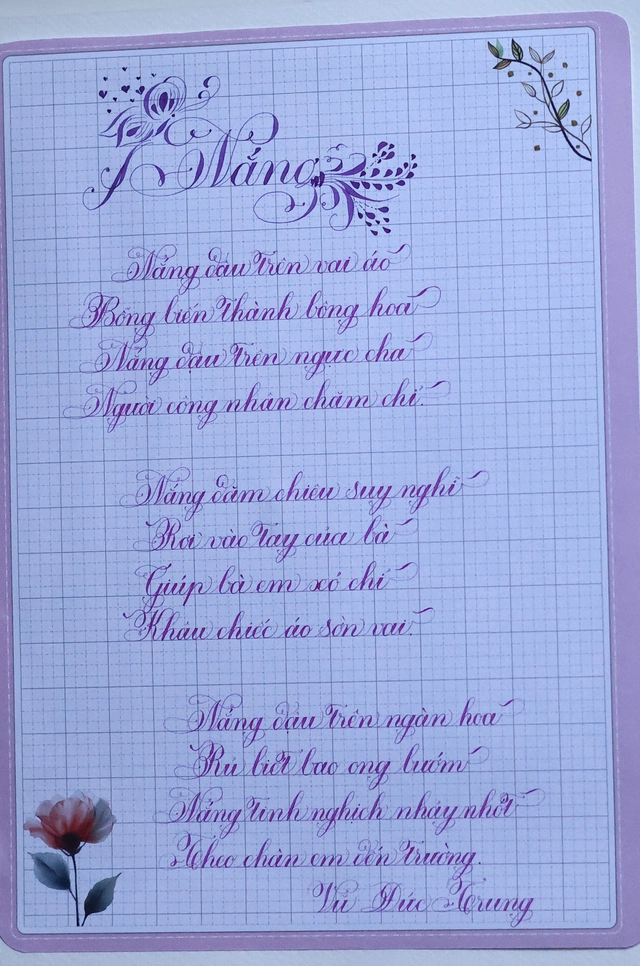 Nắng
Nắng đậu trên vai áo
Bỗng biến thành bông hoa
Nắng đậu trên ngực cha
Người công nhân chăm chỉ.
Nắng đăm chiêu suy nghĩ
Rơi vào tay của bà
Giúp bà em xỏ chỉ
Khâu chiếc áo sờn vai.
Nắng đậu trên ngàn hoa
Rủ biết bao ong bướm
Nắng tinh nghịch nhảy nhót
Theo chân em đến trường.
Vũ Đức Trung